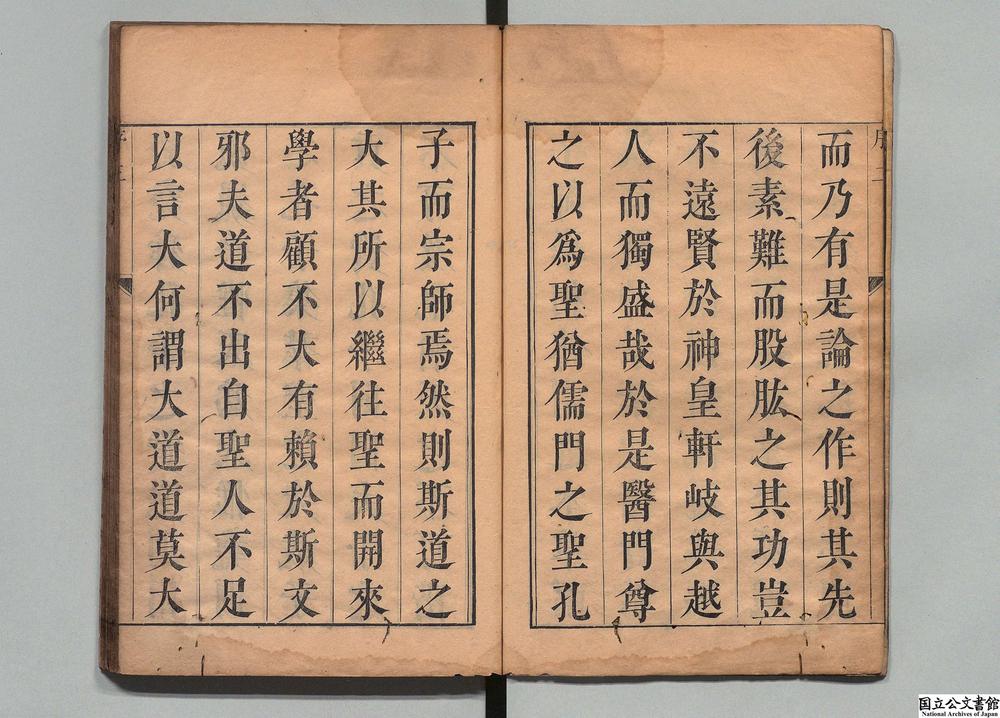 而乃有是論之作則其先
後素難而股肱之其功豈
不遠賢於神皇軒岐與越
人而獨盛哉於是醫門尊
之以爲聖猶儒門之聖孔
子而宗師焉然則斯道之
大其所以繼往聖而開來
學者顧不大有賴於斯文
邪夫道不出自聖人不足
以言大何謂大道道莫大
国立公文書館
National Archives of Japan